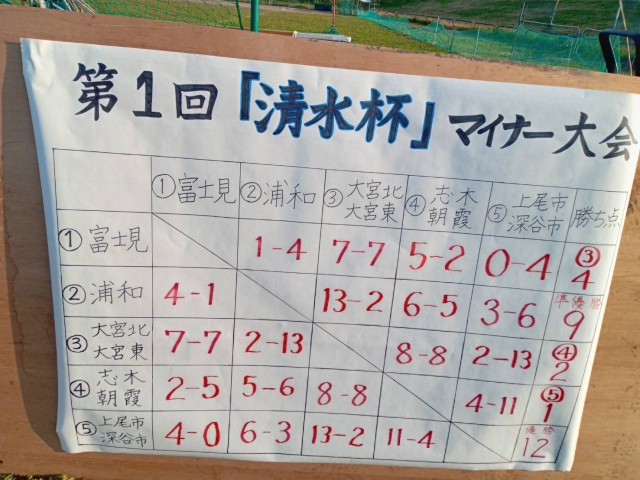 第1回『清水杯』マイナー大会
①富士見 ②浦和 ③大宮北 大宮東 ④志木 朝霞 ⑤上尾市 深谷市 勝ち点
①富士見 1-4 7-7 5-2 0-4 ③ 4
②浦和 4-1 13-2 6-5 3-6 準優勝 9
③大宮北 大宮東 7-7 2-13 8-8 2-13 ④ 2
④志木 朝霞 2-5 5-6 8-8 4-11 ⑤ 1
⑤上尾市 深谷市 4-0 6-3 13-2 11-4 優勝 12